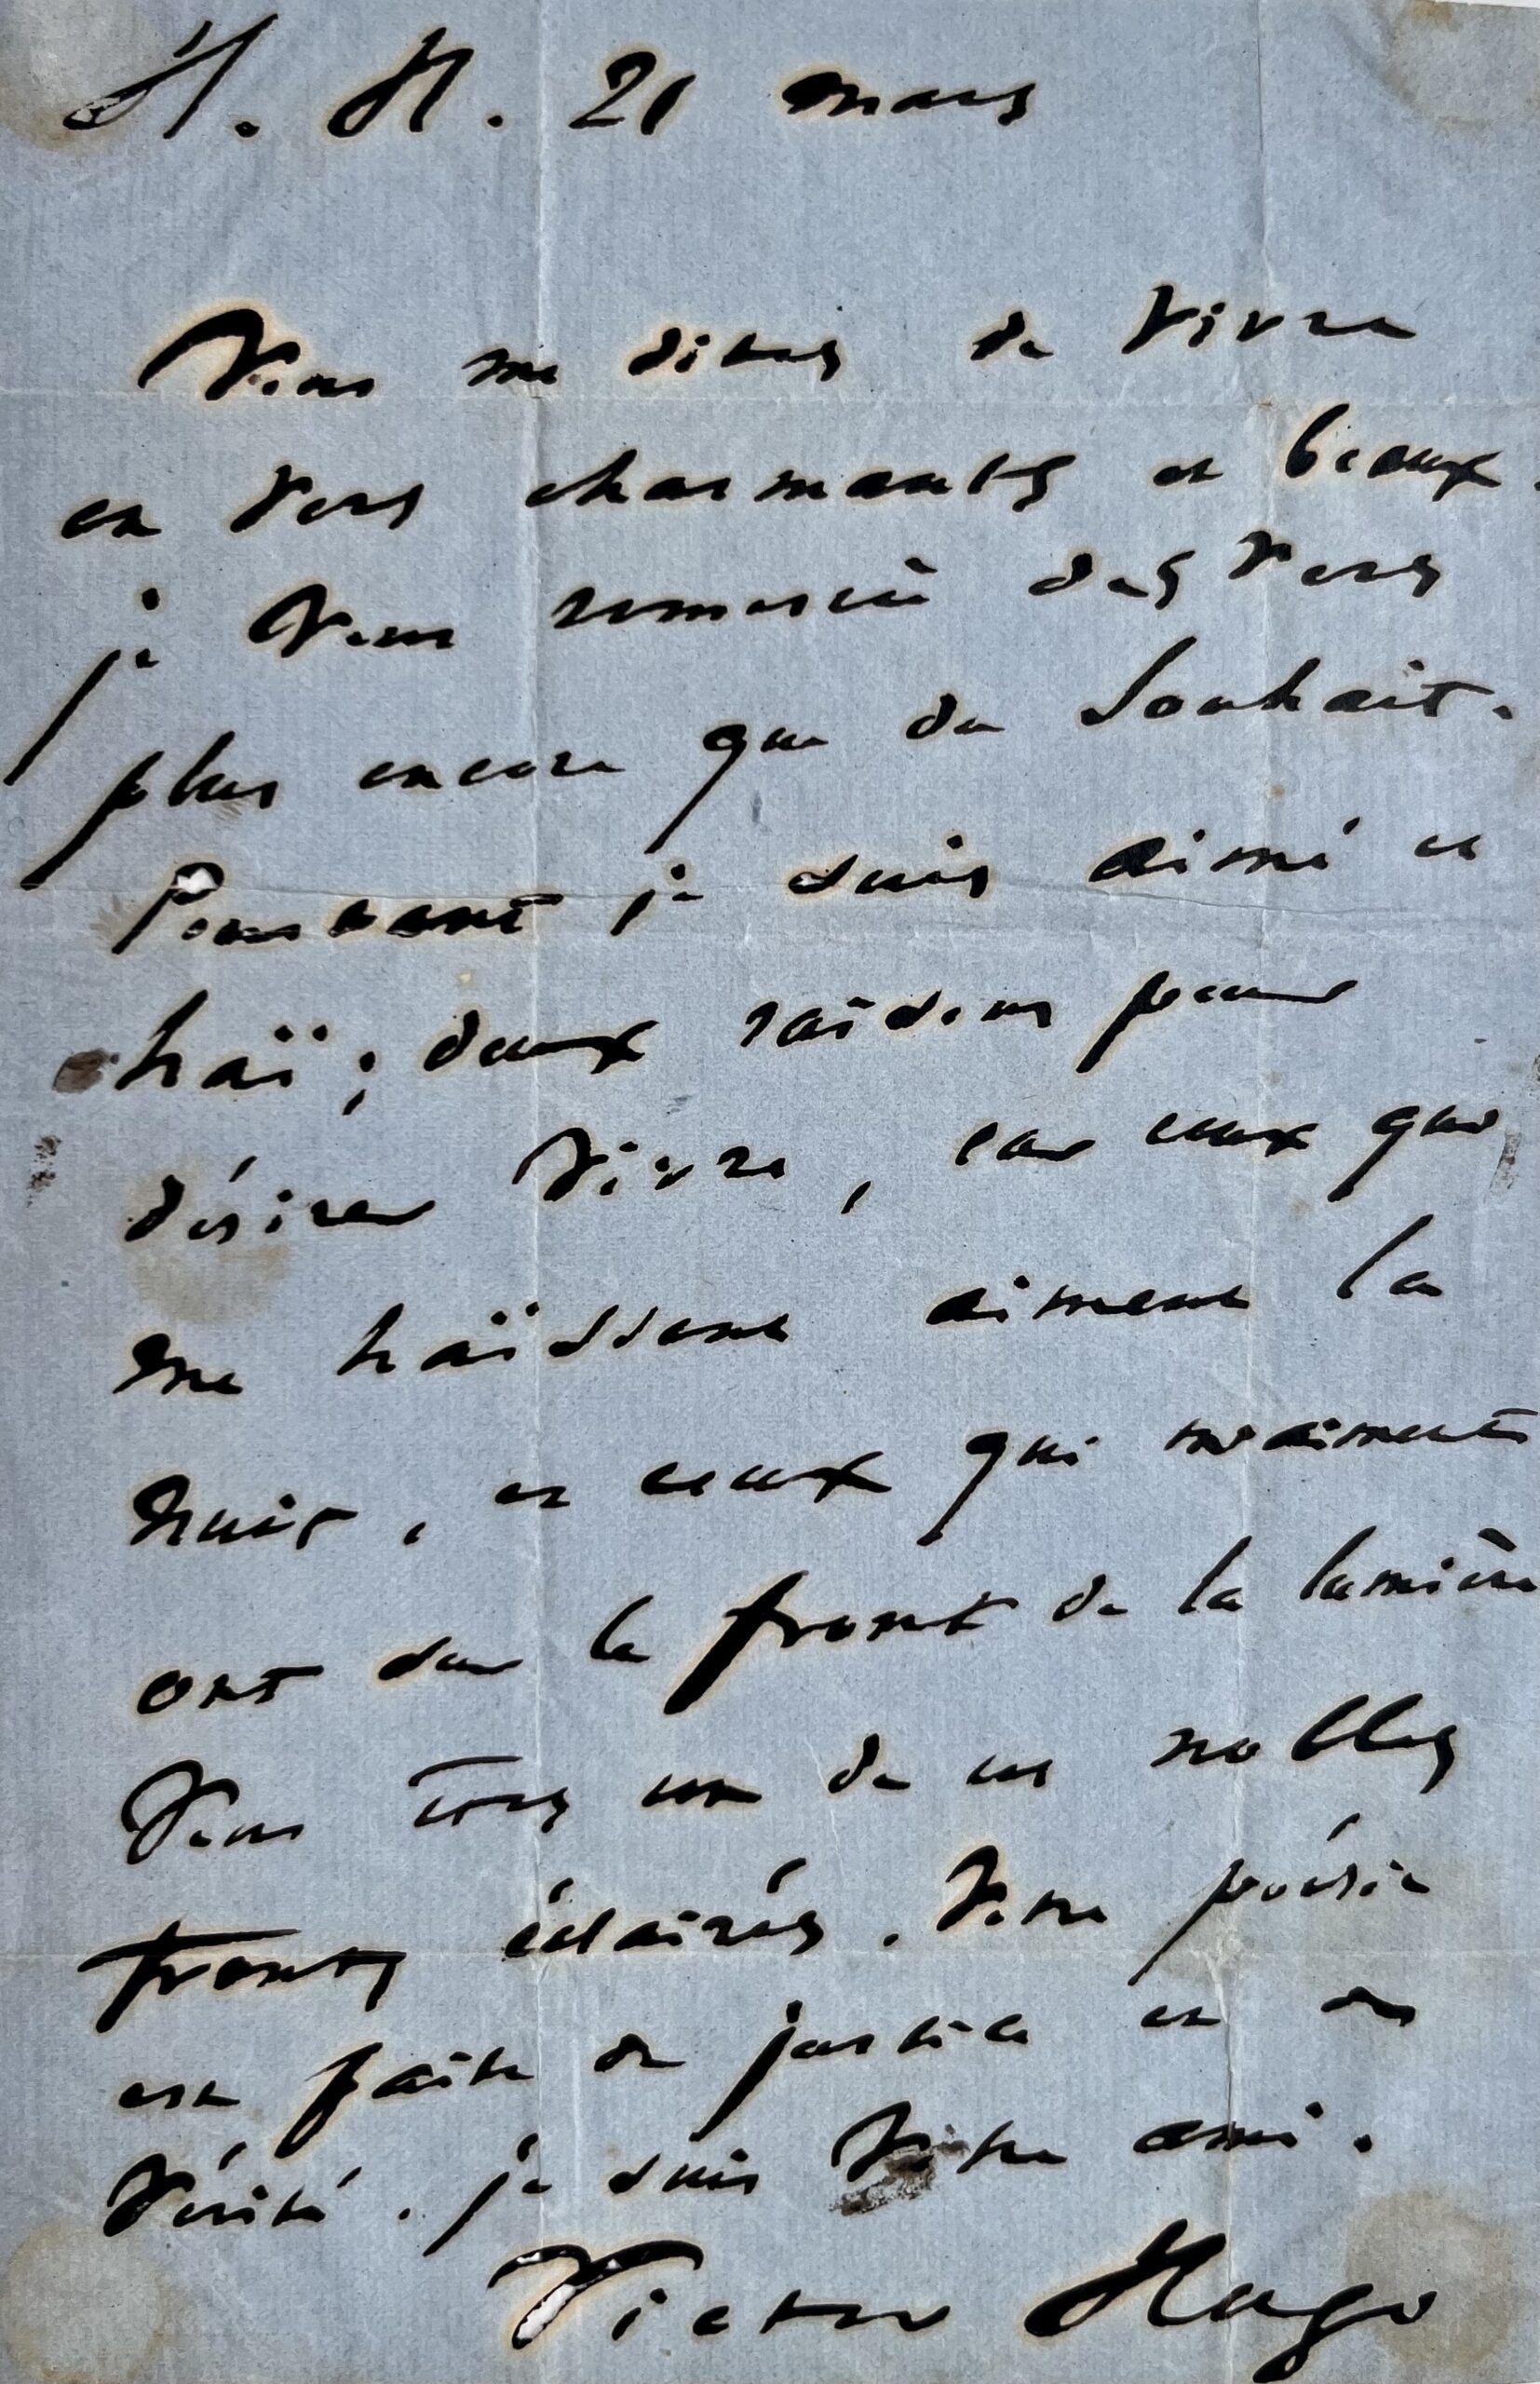 H. H. 21 mars
Vous me dites de vivre
en vers charmants et beaux.
je vous remercie des vers
plus encore que du souhait.
Pourtant je suis aimé et
haï ; deux raisons pour
désirer vivre, car ceux qui
me haïssent aiment la
nuit, et ceux qui m'aiment
ont sur le front de la lumière
Vous êtes un de ces nobles
fronts éclairés. Votre poésie
est faite de justice et de
vérité. je suis votre ami.
Victor Hugo